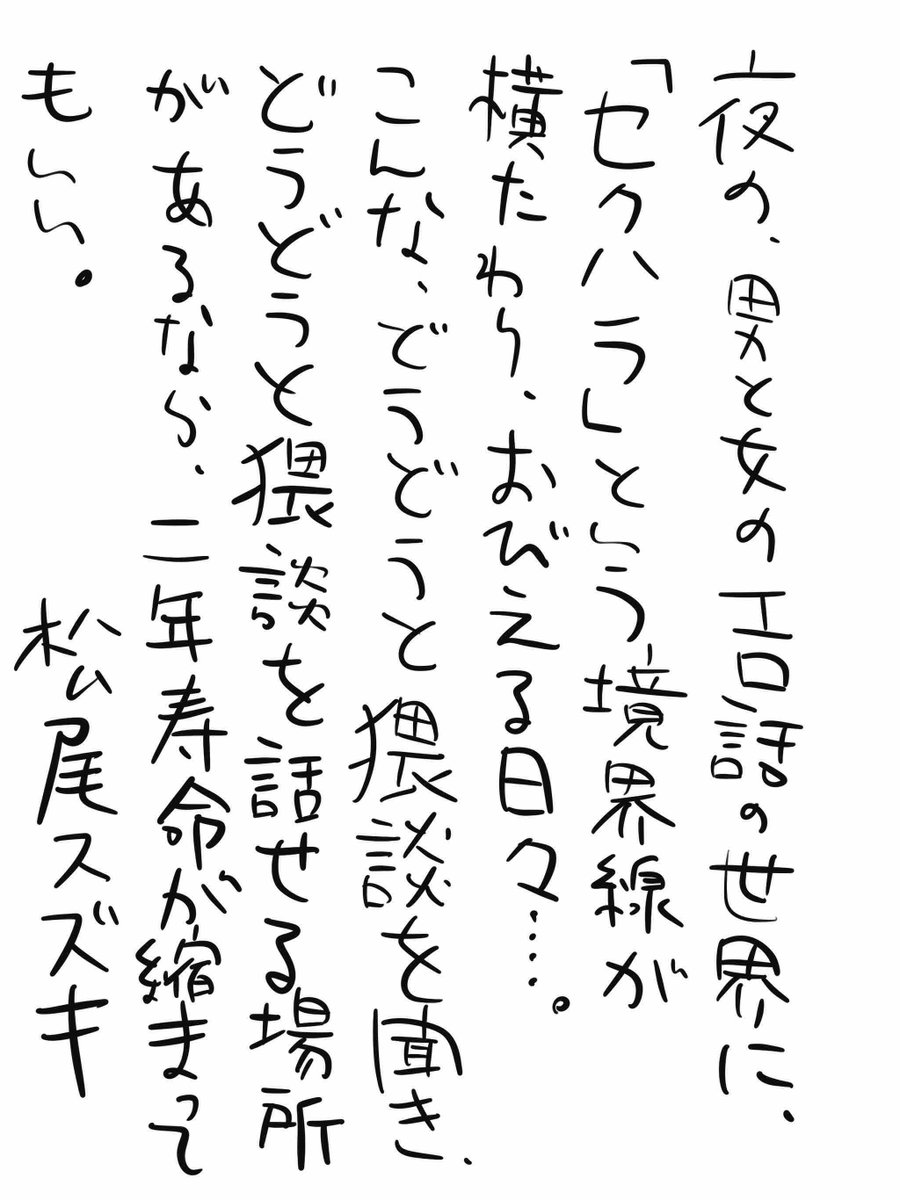 夜の、男と女のエロ話の世界に、
「セクハラ」という境界線が
横たわり、おびえる日々……。
こんな、どうどうと猥談を聞き、
どうどうと猥談を話せる場所
があるなら、二年寿命が縮まって
もいい。
松尾スズキ